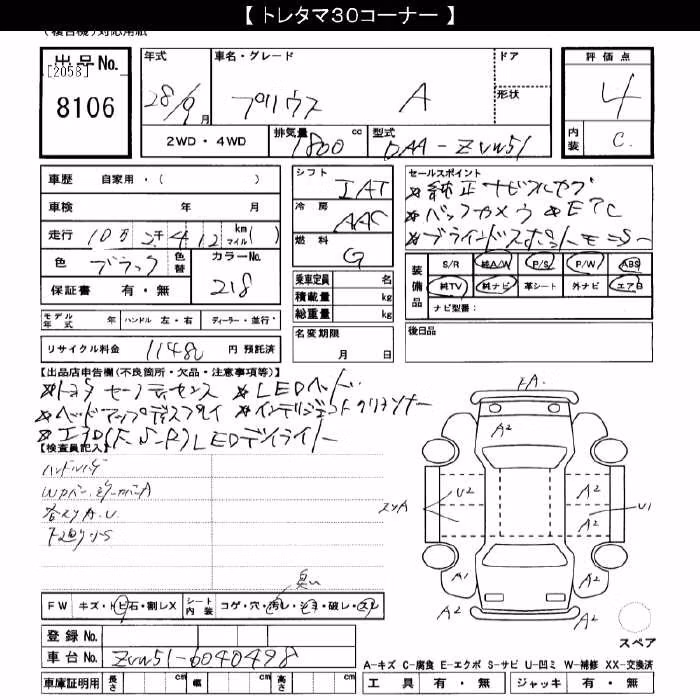 【 トレタマ30コーナー 】
(複合機)対応用紙
出品No.
[2058]
8106
年式
28/9月
車名・グレード
プリウス A
ドア
形状
評価点
4
内装 C
2WD・4WD
排気量 1800 cc
型式 DAA-ZVW51
車歴 自家用・( )
車検 年 月
走行 10万2千412 km マイル( )
色 ブラック 色替
カラーNo. 218
保証書 有・無
シフト IAT
冷房 AAC
燃料 G
乗車定員 名
積載量 kg
総重量 kg
セールスポイント
※純正ナビフルセグ
※バックカメラ ※ETC
※ブラインドスポットモニター
装備品
S/R 純A/W P/S P/W ABS
純TV 純ナビ 革シート 外ナビ エアB
ナビ型番:
モデル年式 年 ハンドル 左・右 ディーラー・並行
名変期限
月 日
後日品
リサイクル料金 11480 円 預託済
【出品店申告欄(不良箇所・欠品・注意事項等)】
※トヨタセーフティセンス ※LEDヘッド
※ヘッドアップディスプレイ ※インテリジェントクリアランスソナー
※エアロ(F.S.R)LEDデイライト
【検査員記入】
ハンドルスレ
各スリA.U
下廻りS
臭い
FW キズ・トビ石・割レX
シート内装 コゲ・穴・汚レ・シミ・破レ・スレ
登録No.
車台No. ZVW51-6040498
車庫証明用 長さ cm 幅 cm 高さ cm
FA.
A2
U2
A2
A2
スリA
U1
A1
A2
A2
A2
スペア
A-キズ C-腐食 E-エクボ S-サビ U-凹ミ W-補修 XX-交換済
工具 有・無 ジャッキ 有・無